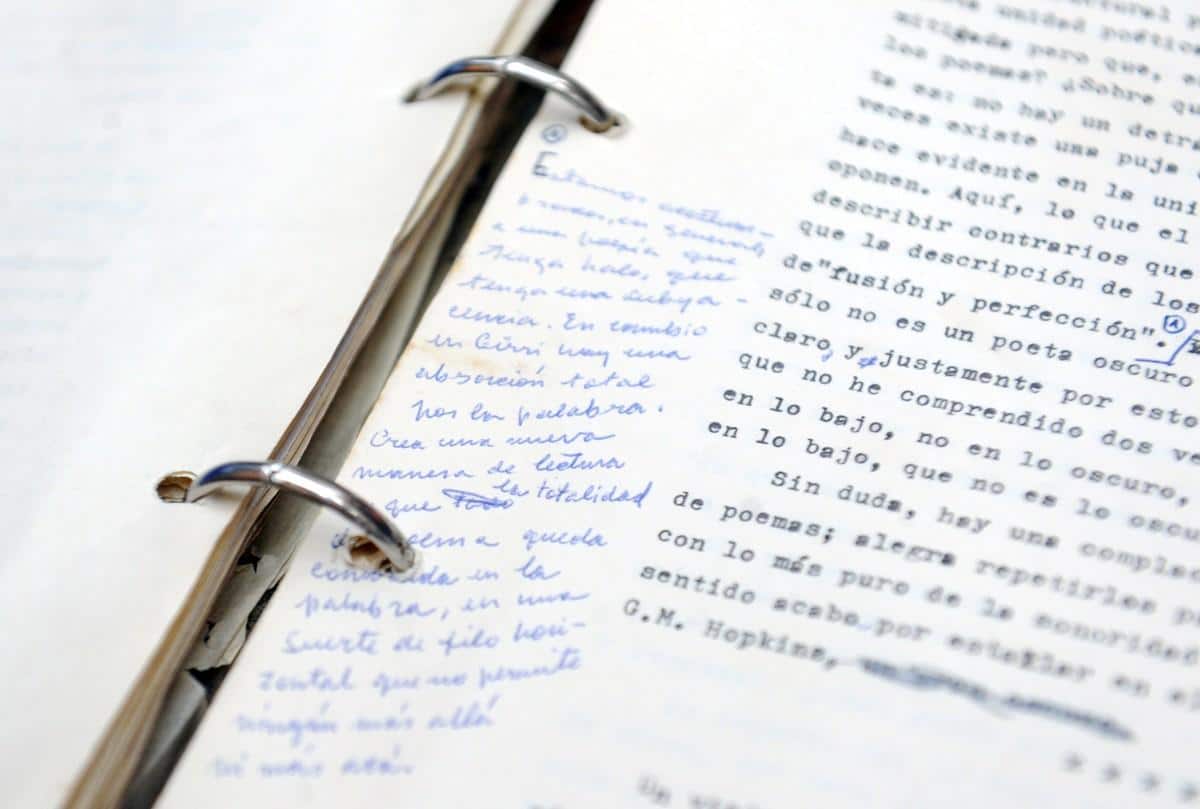 Ⓐ
Estamos acostum-
brados, en general,
a una poesía que
tenga halo, que
tenga una subya-
cencia. En cambio
en Girri hay una
absorción total
por la palabra.
Crea una nueva
manera de lectura
que todo la totalidad
poema queda
en la
palabra, en una
suerte de filo hori-
zontal que no permite
ningún más allá
ni más atrás.
una unidad poétic
mitigada pero que, e
los poemas? ¿Sobre qu
ta es: no hay un detra
veces existe una puja
hace evidente en la uni
oponen. Aquí, lo que el
describir contrarios que
que la descripción de los
de "fusión y perfección". Ⓐ
sólo no es un poeta oscuro
claro, y justamente por esto
que no he comprendido dos ve
en lo bajo, no en lo oscuro,
en lo bajo, que no es lo oscu
Sin duda, hay una complac
de poemas; alegra repetirlos p
con lo más puro de la sonoridad
sentido acaba por estallar en
G.M. Hopkins,
Un